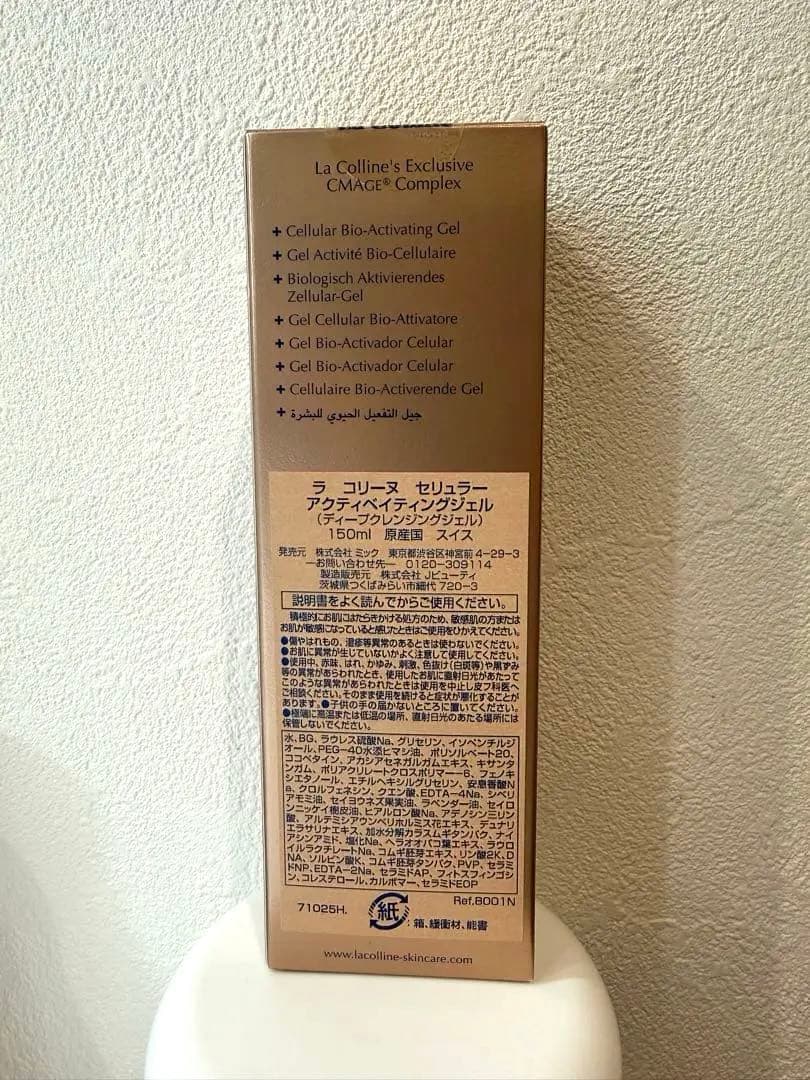 La Colline's Exclusive
CMAGE® Complex
+ Cellular Bio-Activating Gel
+ Gel Activité Bio-Cellulaire
+ Biologisch Aktivierendes
Zellular-Gel
+ Gel Cellular Bio-Attivatore
+ Gel Bio-Activador Celular
+ Gel Bio-Activador Celular
+ Cellulaire Bio-Activerende Gel
+ جيل التفعيل الحيوي للبشرة
ラ コリーヌ セリュラー
アクティベイティングジェル
(ディープクレンジングジェル)
150ml 原産国 スイス
発売元 株式会社 ミック 東京都渋谷区神宮前 4-29-3
—お問い合わせ先— 0120-309114
製造販売元 株式会社 Jビューティ
茨城県つくばみらい市細代 720-3
説明書をよく読んでからご使用ください。
積極的にお肌にはたらきかける処方のため、敏感肌の方または
お肌が敏感になっていると感じたときはご使用をひかえてください。
●傷やはれもの、湿疹等異常のあるときは使わないでください。
●お肌に異常が生じていないかよく注意して使用してください。
●使用中、赤味、はれ、かゆみ、刺激、色抜け(白斑等)や黒ずみ
等の異常があらわれたとき、使用したお肌に直射日光があたって
このような異常があらわれたときは使用を中止し皮フ科医へ
ご相談ください。そのまま使用を続けると症状が悪化することが
あります。●子供の手の届かないところに置いてください。
●極端に高温または低温の場所、直射日光のあたる場所には
保管しないでください。
水、BG、ラウレス硫酸Na、グリセリン、イソペンチルジ
オール、PEG-40水添ヒマシ油、ポリソルベート20、
ココベタイン、アカシアセネガルガムエキス、キサンタ
ンガム、ポリアクリレートクロスポリマー-6、フェノキ
シエタノール、エチルヘキシルグリセリン、安息香酸N
a、クロルフェネシン、クエン酸、EDTA-4Na、シベリ
アモミ油、セイヨウネズ果実油、ラベンダー油、セイロ
ンニッケイ樹皮油、ヒアルロン酸Na、アデノシン三リン
酸、アルテミシアウンベリホルミス花エキス、デュナリ
エラサリナエキス、加水分解カラスムギタンパク、ナイ
アシンアミド、塩化Na、ヘラオオバコ葉エキス、ラウロ
イルラクチレートNa、コムギ胚芽エキス、リン酸2K、D
NA、ソルビン酸K、コムギ胚芽タンパク、PVP、セラミ
ドNP、EDTA-2Na、セラミドAP、フィトスフィンゴシ
ン、コレステロール、カルボマー、セラミドEOP
71025H.
紙
:箱、緩衝材、能書
Ref.8001N
www.lacolline-skincare.com